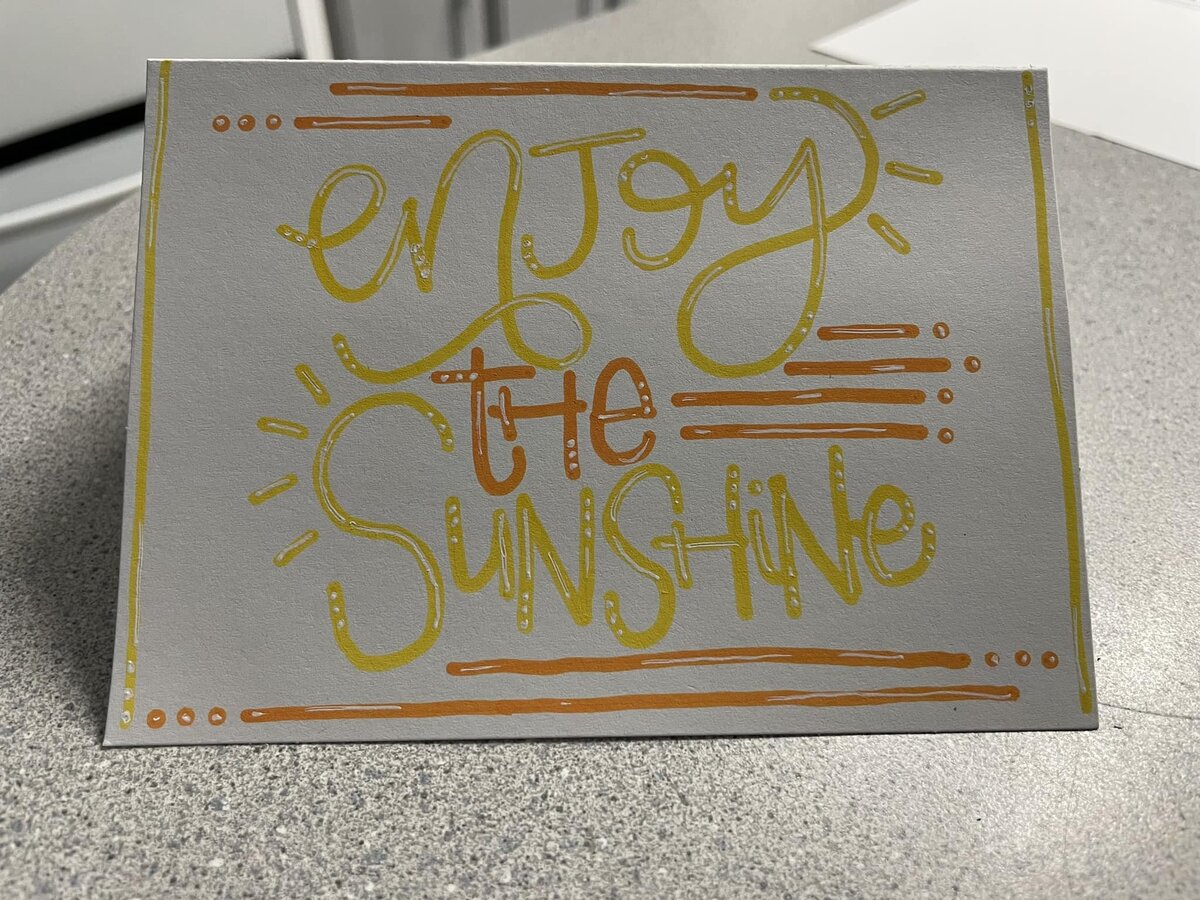 enjoy
the
SUNSHiNe